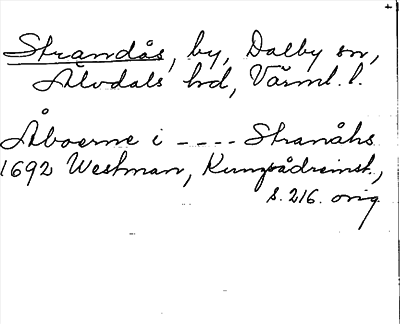 Strandås, by, Dalby sn,
Älvdals hd, Värml. l.
Åboerne i ---- Stranåhs
1692 Westman, Kungsådreinst.,
s. 216. orig